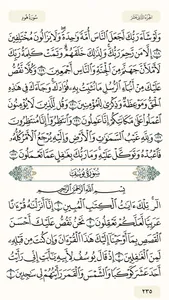 الجزء الثاني عشر سورة هود
وَلَوْ شَآءَ رَبُّكَ لَجَعَلَ ٱلنَّاسَ أُمَّةً وَٰحِدَةً وَلَا يَزَالُونَ مُخْتَلِفِينَ
١١٨ إِلَّا مَن رَّحِمَ رَبُّكَ وَلِذَٰلِكَ خَلَقَهُمْ وَتَمَّتْ كَلِمَةُ رَبِّكَ
لَأَمْلَأَنَّ جَهَنَّمَ مِنَ ٱلْجِنَّةِ وَٱلنَّاسِ أَجْمَعِينَ ١١٩ وَكُلًّا نَّقُصُّ
عَلَيْكَ مِنْ أَنۢبَآءِ ٱلرُّسُلِ مَا نُثَبِّتُ بِهِۦ فُؤَادَكَ وَجَآءَكَ فِى هَٰذِهِ
ٱلْحَقُّ وَمَوْعِظَةٌ وَذِكْرَىٰ لِلْمُؤْمِنِينَ ١٢٠ وَقُل لِّلَّذِينَ لَا يُؤْمِنُونَ
ٱعْمَلُوا۟ عَلَىٰ مَكَانَتِكُمْ إِنَّا عَٰمِلُونَ ١٢١ وَٱنتَظِرُوٓا۟ إِنَّا مُنتَظِرُونَ
١٢٢ وَلِلَّهِ غَيْبُ ٱلسَّمَٰوَٰتِ وَٱلْأَرْضِ وَإِلَيْهِ يُرْجَعُ ٱلْأَمْرُ كُلُّهُۥ
فَٱعْبُدْهُ وَتَوَكَّلْ عَلَيْهِ وَمَا رَبُّكَ بِغَٰفِلٍ عَمَّا تَعْمَلُونَ ١٢٣
سورة يوسف
بِسْمِ ٱللَّهِ ٱلرَّحْمَٰنِ ٱلرَّحِيمِ
الٓر تِلْكَ ءَايَٰتُ ٱلْكِتَٰبِ ٱلْمُبِينِ ١ إِنَّآ أَنزَلْنَٰهُ قُرْءَٰنًا
عَرَبِيًّا لَّعَلَّكُمْ تَعْقِلُونَ ٢ نَحْنُ نَقُصُّ عَلَيْكَ أَحْسَنَ
ٱلْقَصَصِ بِمَآ أَوْحَيْنَآ إِلَيْكَ هَٰذَا ٱلْقُرْءَانَ وَإِن كُنتَ مِن قَبْلِهِۦ
لَمِنَ ٱلْغَٰفِلِينَ ٣ إِذْ قَالَ يُوسُفُ لِأَبِيهِ يَٰٓأَبَتِ إِنِّى رَأَيْتُ
أَحَدَ عَشَرَ كَوْكَبًا وَٱلشَّمْسَ وَٱلْقَمَرَ رَأَيْتُهُمْ لِى سَٰجِدِينَ ٤
٢٣٥